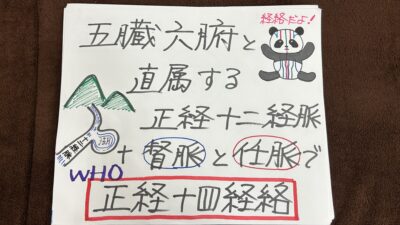 経絡だよ!
五臓六腑と
直属する
正経十二経脈
+督脈と任脈で
WHO
正経十四経絡